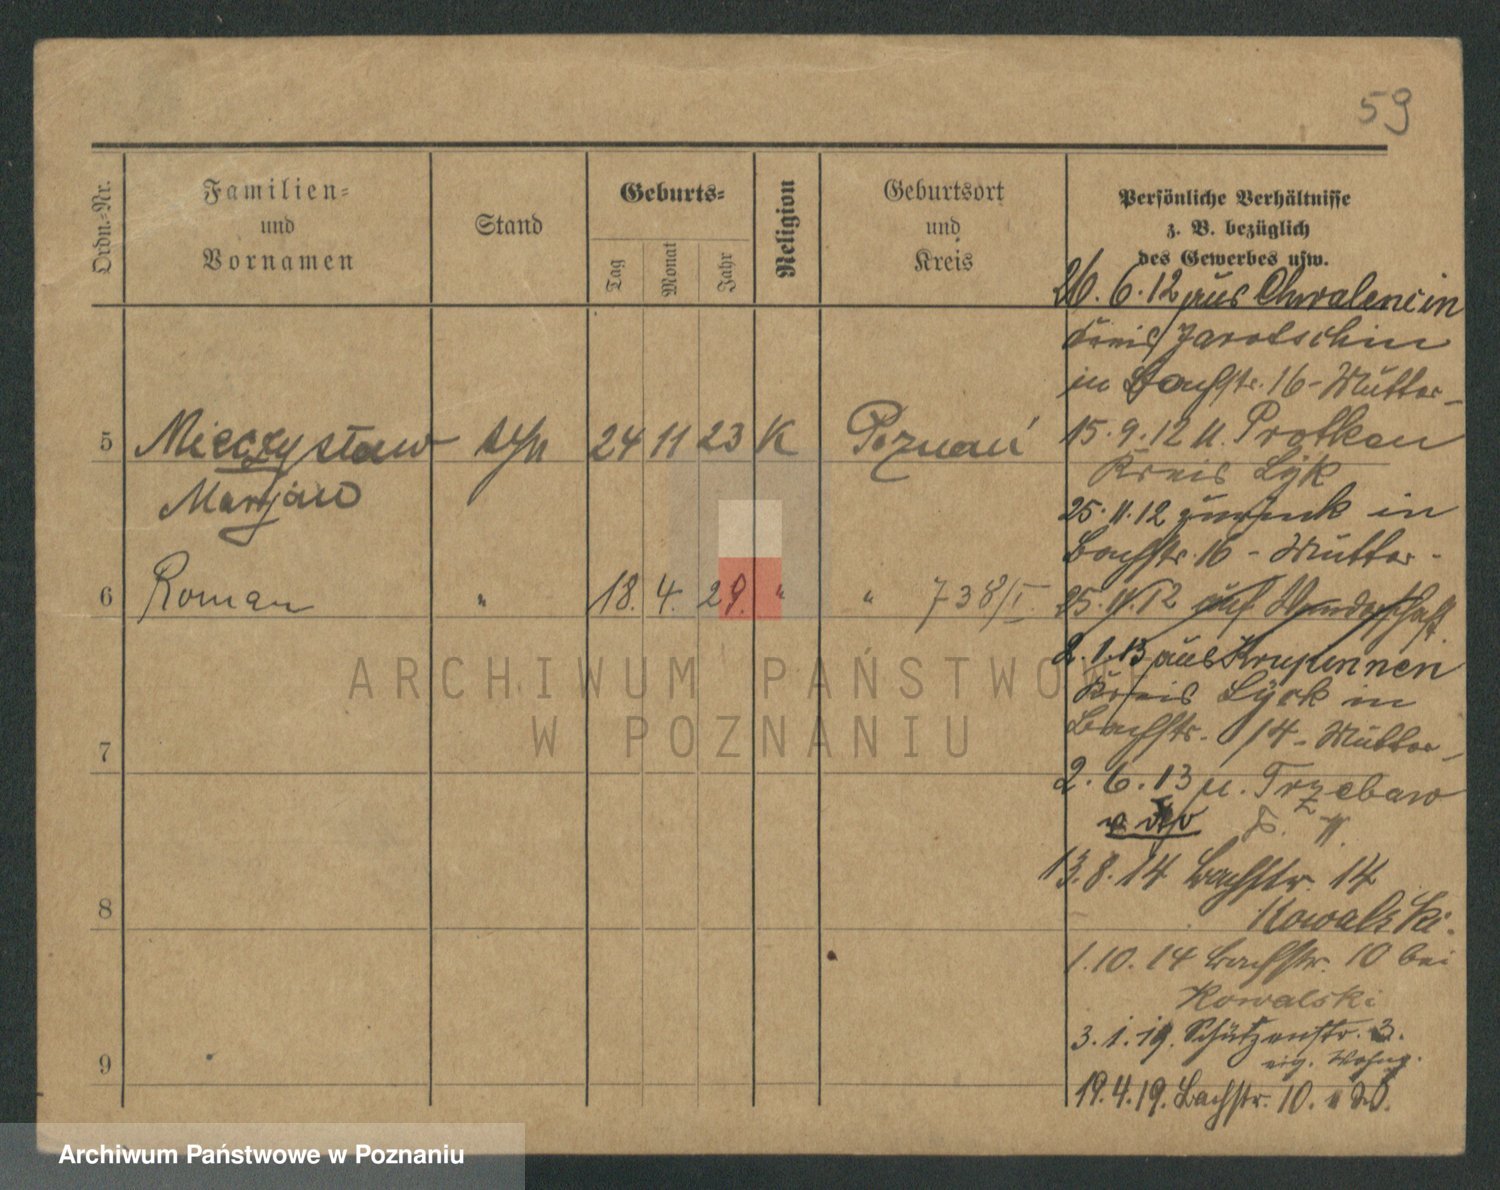 59
Ordn.-Nr.
Familien-
und
Vornamen
Stand
Geburts-
Tag
Monat
Jahr
Religion
Geburtsort
und
Kreis
Persönliche Verhältnisse
z. B. bezüglich
des Gewerbes usw.
5 Mieczysław syn 24 11 23 K Poznań
Marjan
6 Roman " 18. 4. 29. " " 738/I.
7
8
9
26. 6. 12 aus Chwalencin
Kreis Jarotschin
in Bachstr. 16 - Mutter -
15. 9. 12 n. Prostken
Kreis Lyk
25. 11. 12 zurück in
Bachstr. 16 - Mutter -
25. 11. 12 auf Wanderschaft.
2. 1. 13 aus Krupinnen
Kreis Lyck in
Bachstr. 14 - Mutter -
2. 6. 13 n. Trzebaw
13. 8. 14 Bachstr. 14
Kowalski.
1. 10. 14 Bachstr. 10 bei
Kowalski
3. 1. 19. Schützenstr. 3.
eig. Wohng.
19. 4. 19. Bachstr. 10.
ARCHIWUM PAŃSTWOWE
W POZNANIU
Archiwum Państwowe w Poznaniu